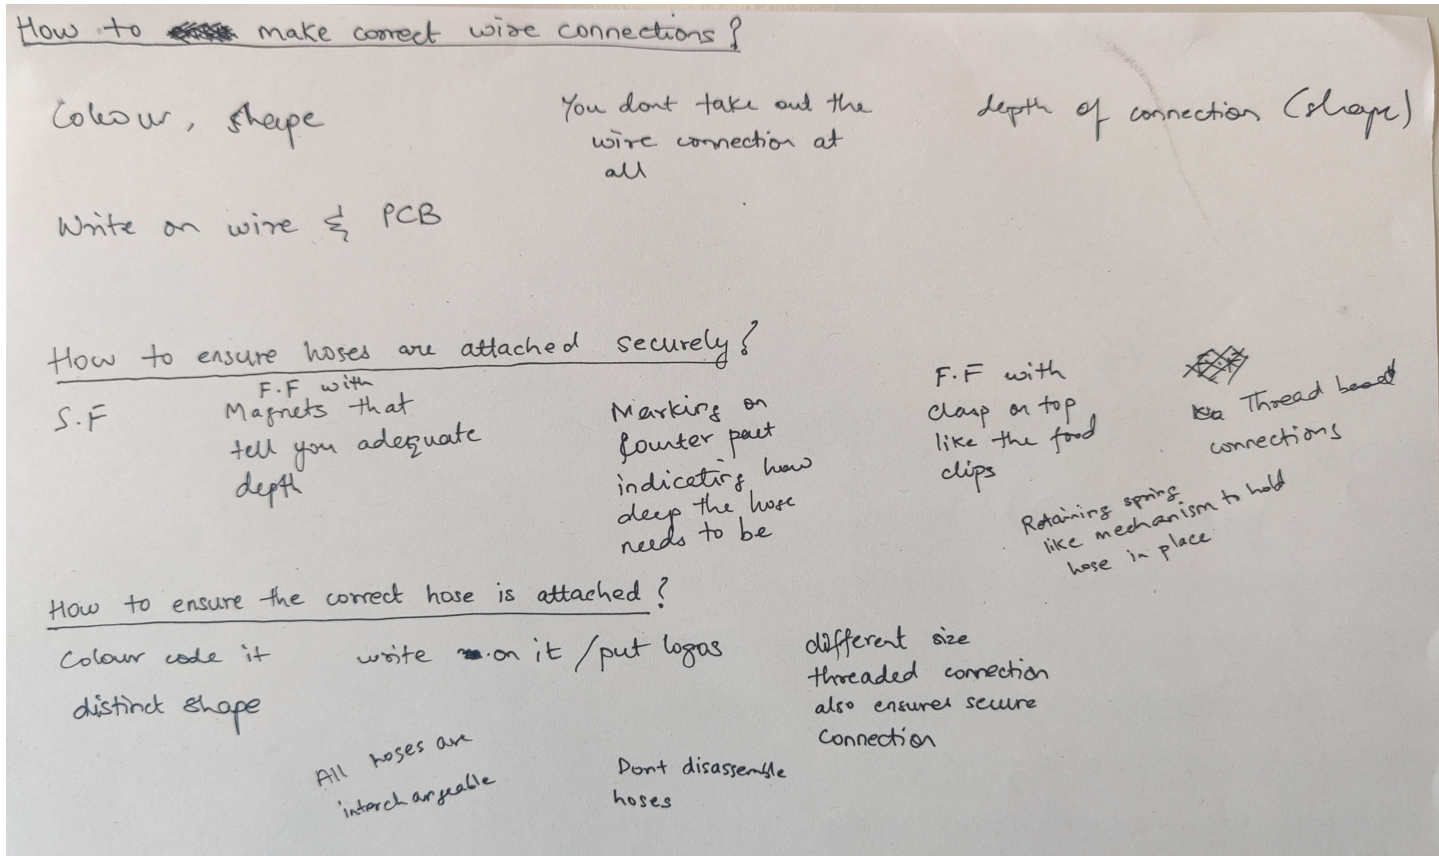 How to make correct wire connections?
Colour, shape
You dont take out the
wire connection at
all
depth of connection (shape)
Write on wire & PCB
How to ensure hoses are attached securely?
S.F
F.F with
Magnets that
tell you adequate
depth
Marking on
counter part
indicating how
deep the hose
needs to be
F.F with
clasp on top
like the food
clips
Thread based
connections
Retaining spring
like mechanism to hold
hose in place
How to ensure the correct hose is attached?
Colour code it
distinct shape
write on it / put logos
different size
threaded connection
also ensures secure
connection
All hoses are
interchangeable
Dont disassemble
hoses